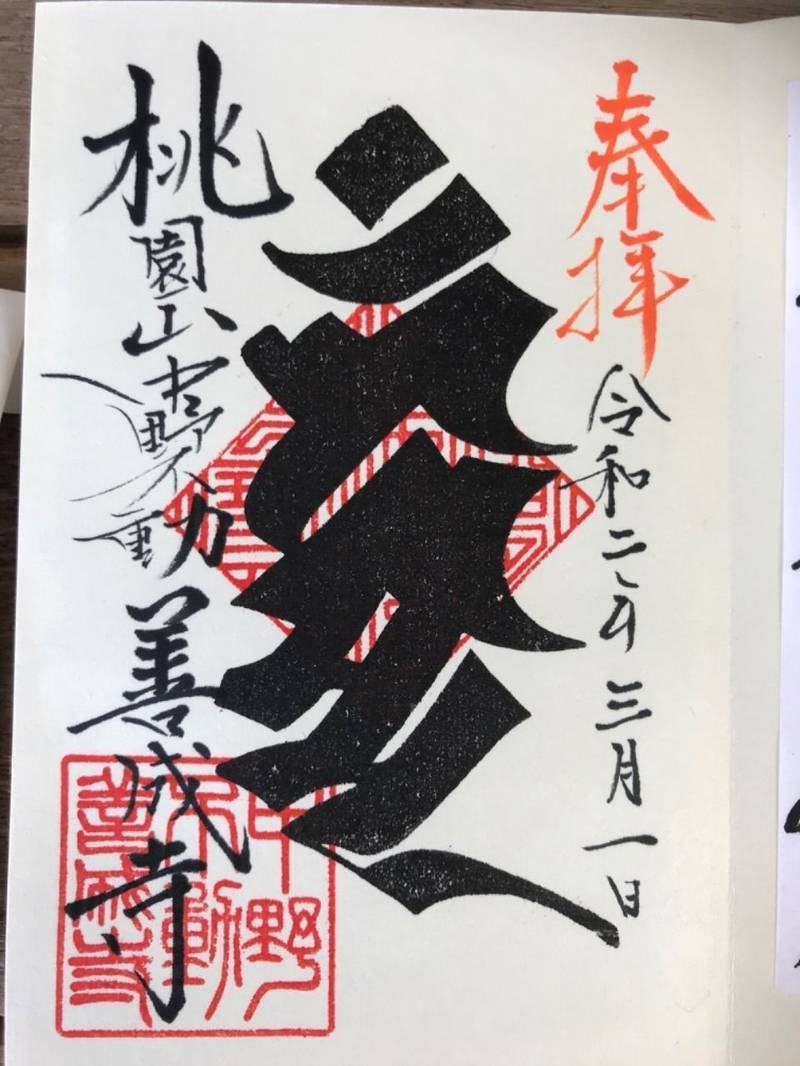 奉拝
令和二年三月一日
桃園山中野不動善成寺
中野
不動
善成寺